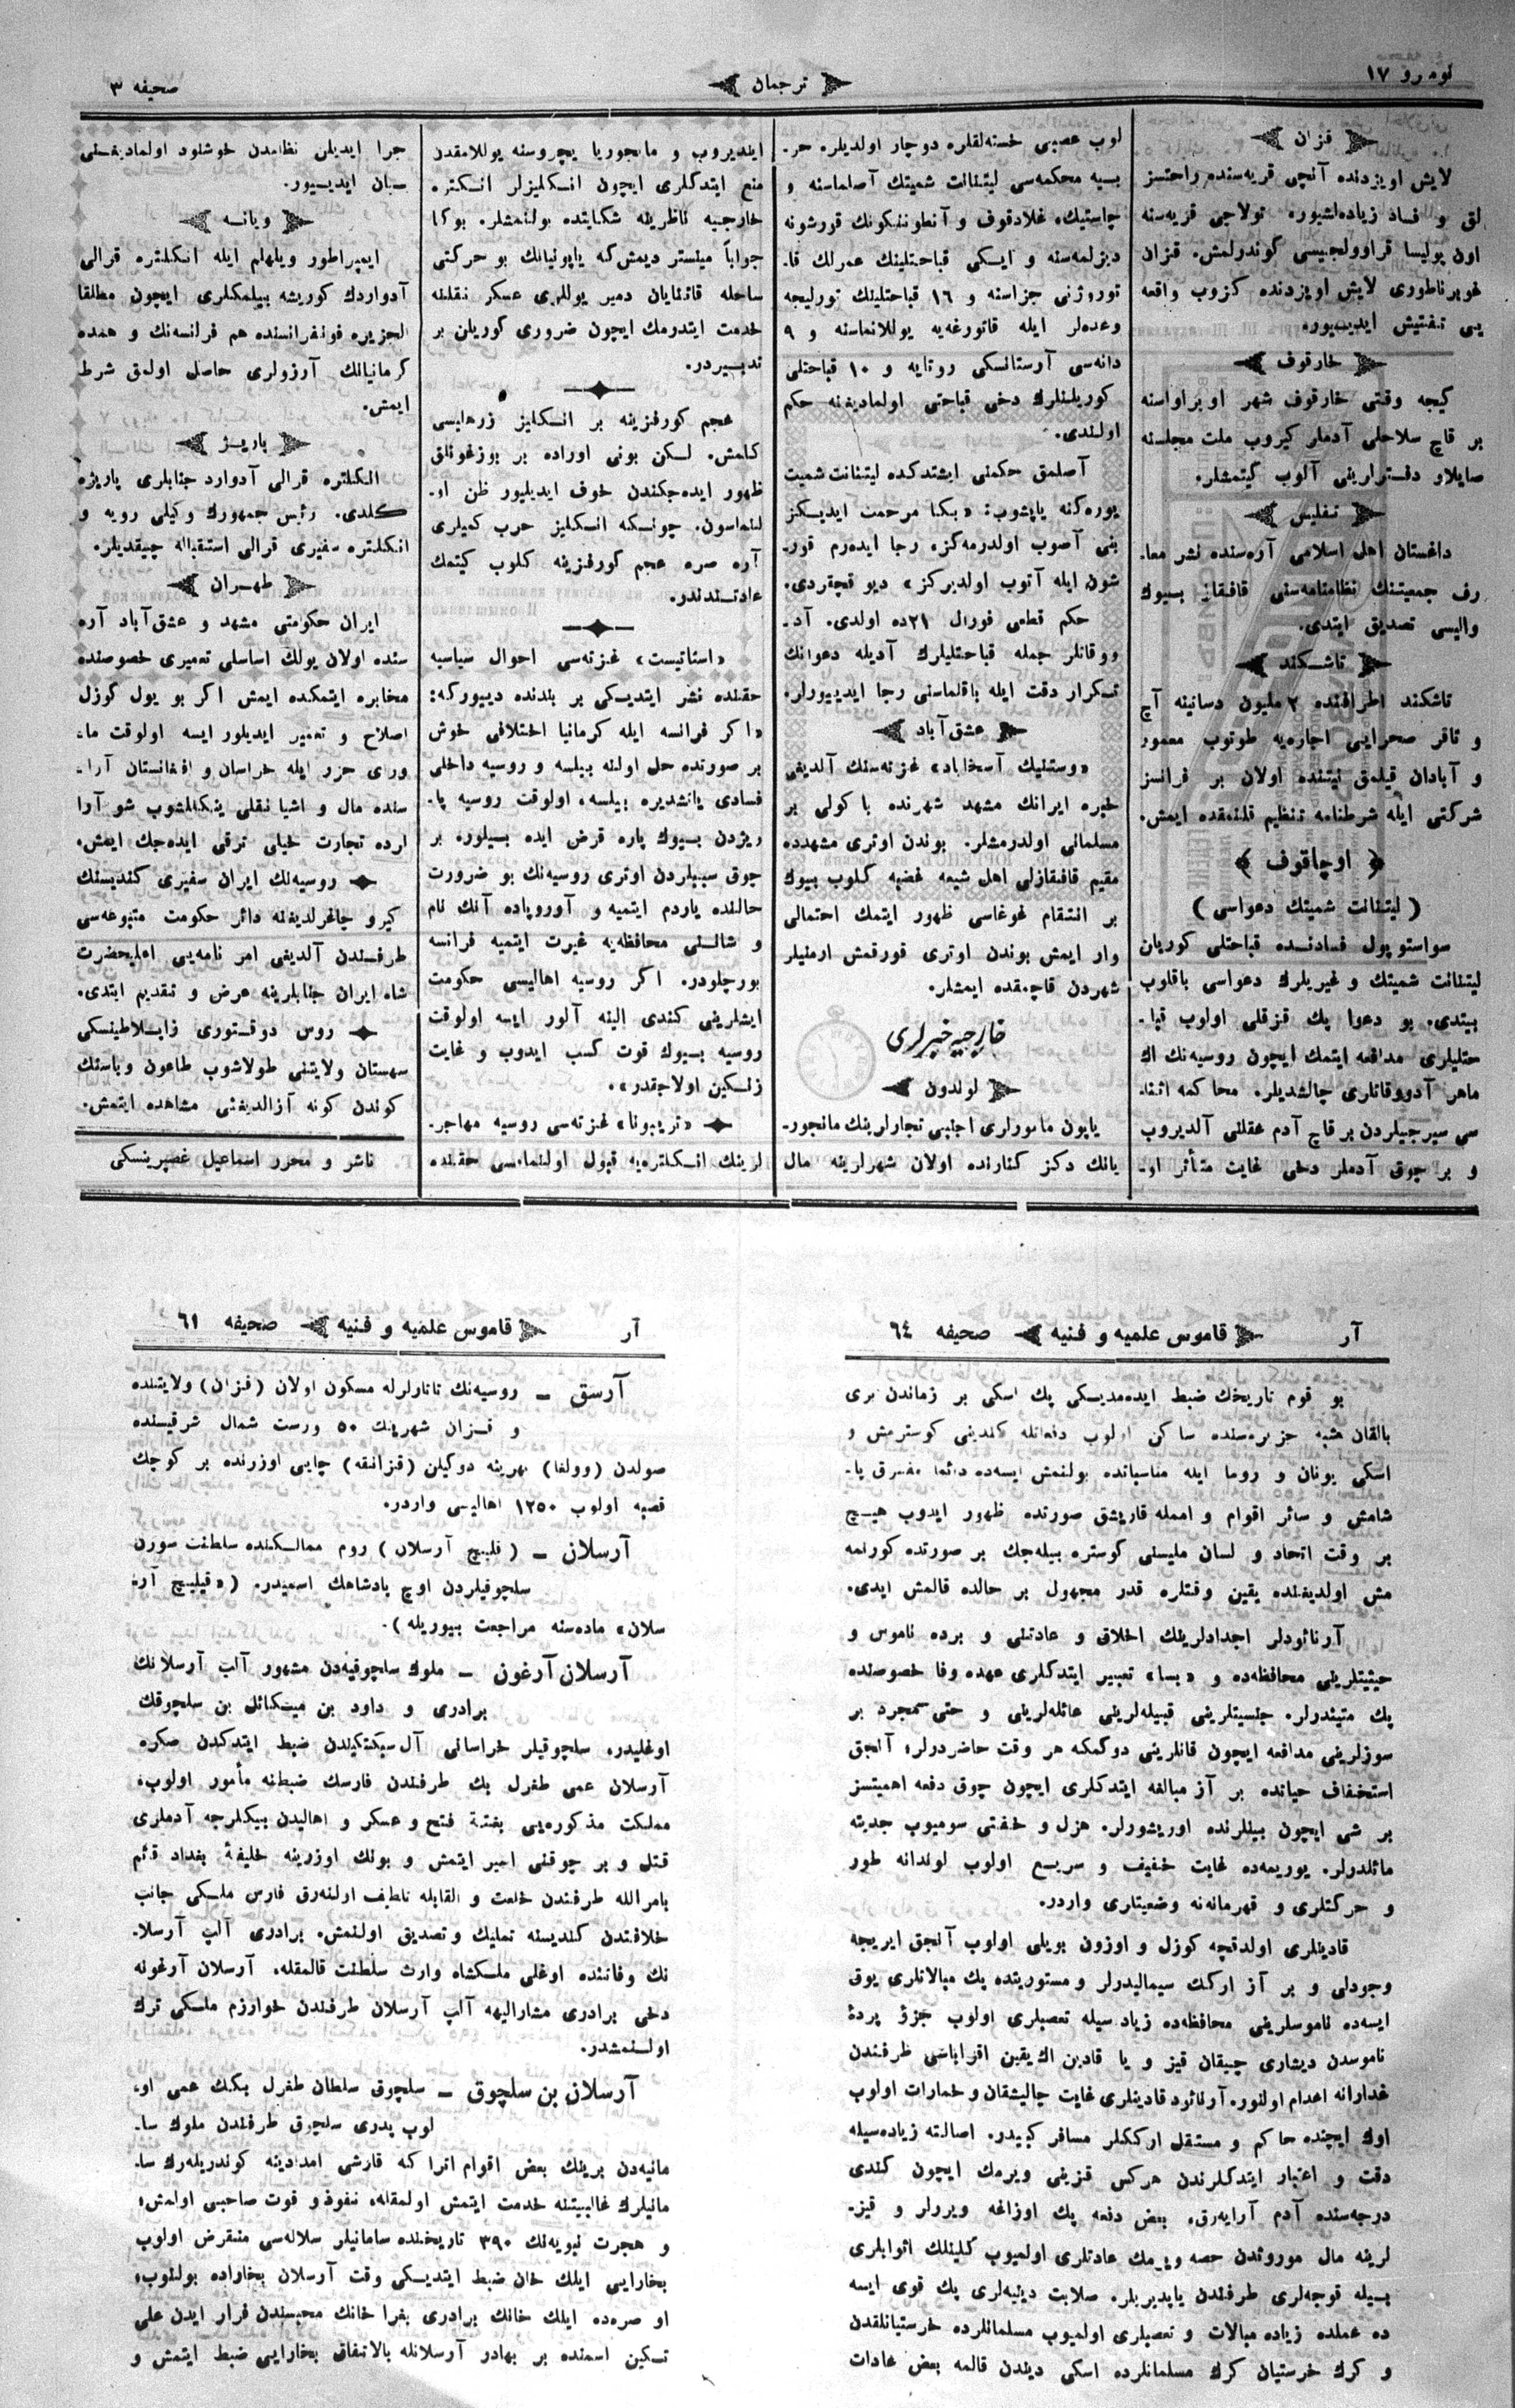 نومرو ۱۷
ترجمان
صحیفه ۳
قزان
لایش اویزدنده آنچی قریه‌سنده راحتسز
لق و فساد زیاده‌لشیور. تولاچی قریه‌سنه
اون پولیسا قراوولجیسی کوندرلمش. قزان
غوبرناطوری لایش اویزدنده کزوب واقعه
یی تفتیش ایدییور.
خارقوف
کیجه وقتی خارقوف شهر اوپراواسنه
بر قاچ سلاحلی آدملر کیروب ملت مجلسنه
صایلاو دفترلرینی آلوب کیتمشلر.
تفلیس
داغستان اهل اسلامی آره‌سنده نشر معا-
رف جمعیتنك نظامنامه‌سنی قافقاز بیوك
والیسی تصدیق ایتدی.
تاشکند
تاشکند اطرافنده ۲ ملیون دساتینه آچ
و تاقر صحرایی اجاره‌یه طوتوب معمور
و آبادان قیلمق نیتنده اولان بر فرانسز
شرکتی ایله شرطنامه تنظیم قلنمقده ایمش.
اوچاقوف
( لیتنانت شمیتك دعواسی )
سواستوپول فسادنده قباحتلی کوریان
لیتنانت شمیتك و غیریلرك دعواسی باقلوب
بیتدی. بو دعوا پك قزقلی اولوب قبا-
حتلیلری مدافعه ایتمك ایچون روسیه‌نك اك
ماهر آدووقاتلری چالشدیلر. محاکمه اثنا-
سی سیرجیلردن بر قاچ آدم عقلنی آلدیروب
و بر چوق آدملر دخی غایت متأثر او-
لوب عصبی خسته‌لقلره دوچار اولدیلر. حر-
بیه محکمه‌سی لیتنانت شمیتك آصلماسنه و
چاستنیك، غلادقوف و آنطوننکونك قورشونه
دیزلمه‌سنه و ایکی قباحتلینك عمرلك قا-
توروژنی جزاسنه و ۱۶ قباحتلینك تورلیجه
وعده‌لر ایله قاتورغه‌یه یوللانماسنه و ۹
دانه‌سی آرستانسکی روتایه و ۱۰ قباحتلی
کوریلنلرك دخی قباحتی اولمادیغنه حکم
اولندی.
آصلمق حکمنی ایشتدکده لیتنانت شمیت
یوره‌کنه یاپشوب: «بکا مرحمت ایدیکز
بنی آصوب اولدرمه‌کز، رجا ایده‌رم قور-
شون ایله آتوب اولدیرکز» دیو قچقردی.
حکم قطعی فورال ۲۱ده اولدی. آد-
ووقاتلر جمله قباحتلیلرك آدیله دعوانك
تکرار دقت ایله باقلماسنی رجا ایدییورلر.
عشق آباد
«وستنیك آسخاباد» غزته‌سنك آلدیغی
خبره ایرانك مشهد شهرنده باکولی بر
مسلمانی اولدرمشلر. بوندن اوتری مشهدده
مقیم قافقازلی اهل شیعه غضبه کلوب بیوك
بر انتقام غوغاسی ظهور ایتمك احتمالی
وار ایمش بوندن اوتری قورقمش ارمنیلر
شهردن قاچمقده ایمشلر.
خارجیه خبرلری
لوندون
یاپون مامورلری اجنبی تجارلرینك مانجور-
یانك دکز کنارنده اولان شهرلرینه مال
ایندیروب و مانجوریا ایچروسنه یوللامقدن
منع ایتدکلری ایچون انکلیزلر انکلتره
خارجیه ناظرینه شکایتده بولنمشلر. بوکا
جواباً مینستر دیمش که یاپونیانك بو حرکتی
ساحله قاتنایان دمیر یوللری عسکر نقلنه
خدمت ایتدرمك ایچون ضروری کوریلن بر
تدبیردر.
عجم کورفزینه بر انکلیز زرهلیسی
کلمش. لکن بونی اوراده بر بوزغونلق
ظهور ایده‌جکندن خوف ایدیلیور ظن او-
لنماسون. چونکه انکلیز حرب کمیلری
آره صره عجم کورفزینه کلوب کیتمك
عادتندندر.
«استاتیست» غزته‌سی احوال سیاسیه
حقنده نشر ایتدیکی بر بندنده دییورکه:
«اکر فرانسه ایله کرمانیا اختلافی خوش
بر صورتده حل اولنه بیلسه و روسیه داخلی
فسادی یانشدیره بیلسه، اولوقت روسیه پا-
ریژدن بیوك پاره قرض ایده بیلور. بر
چوق سببلردن اوتری روسیه‌نك بو ضرورت
حالنده یاردم ایتمیه و آوروپاده آنك نام
و شاننی محافظه‌یه غیرت ایتمیه فرانسه
بورجلودر. اکر روسیه اهالیسی حکومت
ایشلرینی کندی الینه آلور ایسه اولوقت
روسیه بیوك قوت کسب ایدوب و غایت
زنکین اولاجقدر».
«تریبونا» غزته‌سی روسیه مهاجر-
لرینك انکلتره‌یه قبول اولنماسی حقنده
جرا ایدیلن نظامدن خوشنود اولمادیغنی
بیان ایدییور.
ویانه
ایمپراطور ویلهلم ایله انکلتره قرالی
آدواردك کوریشه بیلمکلری ایچون مطلقا
الجزیره قونفرانسنده هم فرانسه‌نك و همده
کرمانیانك آرزولری حاصل اولمق شرط
ایمش.
پاریژ
انکلتره قرالی آدوارد جنابلری پاریژه
کلدی. رئیس جمهورك وکیلی رویه و
انکلتره سفیری قرالی استقباله چیقدیلر.
طهران
ایران حکومتی مشهد و عشق آباد آره
سنده اولان یولك اساسلی تعمیری خصوصنده
مخابره ایتمکده ایمش اکر بو یول کوزل
اصلاح و تعمیر ایدیلور ایسه اولوقت ما-
ورای حزر ایله خراسان و افغانستان آرا-
سنده مال و اشیا نقلی ینکللشوب شو آرا
لرده تجارت خیلی ترقی ایده‌جك ایمش.
روسیه‌نك ایران سفیری کندیسنك
کیرو چاغرلدیغنه دائر حکومت متبوعه‌سی
طرفندن آلدیغی امر نامه‌یی اعلیحضرت
شاه ایران جنابلرینه عرض و تقدیم ایتدی.
روس دوقتوری زابلاطینسکی
سهستان ولایتنی طولاشوب طاعون وباسنك
کوندن کونه آزالدیغنی مشاهده ایتمش.
ناشر و محرر اسماعیل غصپرینسکی
آر
قاموس علمیه و فنیه
صحیفه ٦٤
بو قوم تاریخك ضبط ایده‌مدیکی پك اسکی بر زماندن بری
بالقان شبه جزیره‌سنده ساکن اولوب دفعاتله کندینی کوسترمش و
اسکی یونان و روما ایله مناسباتده بولنمش ایسه‌ده دائما متفرق یا-
شامش و سائر اقوام و امله قاریشق صورتده ظهور ایدوب هیچ
بر وقت اتحاد و لسان ملیسنی کوستره بیله‌جك بر صورتده کورنمه
مش اولدیغنده یقین وقتلره قدر مجهول بر حالده قالمش ایدی.
آرنائودلر اجدادلرینك اخلاق و عادتنی و برده ناموس و
حیثیتلرینی محافظه‌ده و «بسا» تعبیر ایتدکلری عهده وفا خصوصنده
پك متیندرلر. جنسیتلرینی قبیله‌لرینی عائله‌لرینی و حتی مجرد بر
سوزلرینی مدافعه ایچون قانلرینی دوکمکه هر وقت حاضردرلر؛ آنجق
استخفاف حیاتده بر آز مبالغه ایتدکلری ایچون چوق دفعه اهمیتسز
بر شی ایچون بینلرنده اوریشورلر. هزل و خفتی سومیوب جدیته
مائلدرلر. یوریمه‌ده غایت خفیف و سریع اولوب لوندانه طور
و حرکتلری و قهرمانه‌نه وضعیتلری واردر.
قادینلری اولدقچه کوزل و اوزون بویلی اولوب آنجق ایریجه
وجودلی و بر آز ارکك سیمالیدرلر و مستوریتده پك مبالاتلری یوق
ایسه‌ده ناموسلرینی محافظه‌ده زیاد سیله تعصبلری اولوب جزؤ پردهٔ
ناموسدن دیشاری چیقان قیز و یا قادین اك یقین اقرباسی طرفندن
غدارانه اعدام اولنور. آرنائود قادینلری غایت چالیشقان و خمارات اولوب
اوك ایچنده حاکم و مستقل ارککلر مسافر کبیدر. اصالته زیاده‌سیله
دقت و اعتبار ایتدکلرندن هرکس قزینی ویرمك ایچون کندی
درجه‌سنده آدم آرایه‌رق، بعض دفعه پك اوزاغه ویرلر و قیز-
لرینه مال موروثدن حصه ویرمك عادتلری اولمیوب کلینلك اثوابلری
بیله قوجه‌لری طرفندن یاپدیریلر. صلابت دینیه‌لری پك قوی ایسه
ده عملده زیاده مبالات و تعصبلری اولمیوب مسلمانلرده خرستیانلقدن
و کرك خرستیان کرك مسلمانلرده اسکی دیندن قالمه بعض عادات
آر
قاموس علمیه و فنیه
صحیفه ٦١
آرسق – روسیه‌نك تاتارلرله مسکون اولان (قزان) ولایتنده
و قزان شهرینك ٥٠ ورست شمال شرقیسنده
صولدن (وولغا) نهرینه دوکیلن (قزانقه) چایی اوزرنده بر کوچك
قصبه اولوب ١٢٥٠ اهالیسی واردر.
آرسلان – ( قلیچ آرسلان ) روم ممالکنده سلطنت سورن
سلچوقیلردن اوچ پادشاهك اسمیدر. («قیلیچ آر-
سلان» ماده‌سنه مراجعت بیوریله).
آرسلان آرغون – ملوك سلچوقیه‌دن مشهور آلپ آرسلانك
برادری و داود بن میکائل بن سلچوقك
اوغلیدر. سلچوقیلر خراسانی آل سبکتکیندن ضبط ایتدکدن صکره
آرسلان عمی طغرل بك طرفندن فارسك ضبطنه مأمور اولوب،
مملکت مذکوره‌یی بغتة فتح و عسکر و اهالیدن بیکلرجه آدملری
قتل و بر چوقنی اسیر ایتمش و بونك اوزرینه خلیفهٔ بغداد قائم
بامر الله طرفندن خلعت و القابله تلطیف اولنه‌رق فارس ملکی جانب
خلافتدن کندیسنه تملیك و تصدیق اولنمش. برادری آلپ آرسلا-
نك وفاتنده اوغلی ملکشاه وارث سلطنت قالمقله، آرسلان آرغونه
دخی برادری مشارالیهه آلپ آرسلان طرفندن خوارزم ملکی ترك
اولنمشدر.
آرسلان بن سلچوق – سلچوقی سلطان طغرل بکك عمی او-
لوب پدری سلچوق طرفندن ملوك سا-
مانیه‌دن برینك بعض اقوام اتراکه قارشی امدادینه کوندریله‌رك سا-
مانیلرك غالبیتنه خدمت ایتمش اولمقله، نفوذ و قوت صاحبی اولمش؛
و هجرت نبویه‌نك ۳۹۰ تاریخنده سامانیلر سلاله‌سی منقرض اولوب
بخارایی ایلك خان ضبط ایتدیکی وقت آرسلان بخاراده بولنوب،
او صره‌ده ایلك خانك برادری بغرا خانك محبسندن فرار ایدن علی
تکین اسمنده بر بهادر آرسلانله بالاتفاق بخارایی ضبط ایتمش و